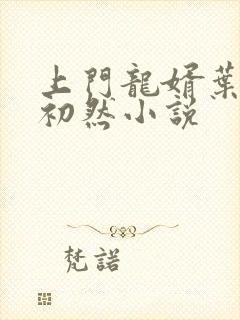 上門龍婿葉
初然小説
梵諾